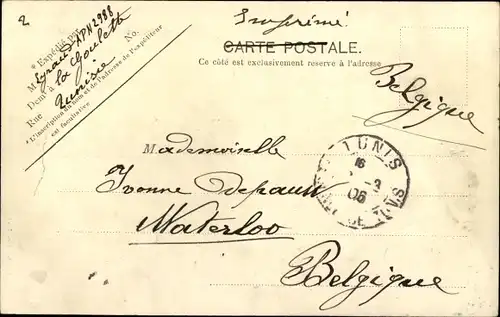 2
Imprimé
CARTE POSTALE.
Ce côté est exclusivement réservé à l'adresse
* Expédié par
M Legrand APN 2988
Dem^t à la Goulette
Rue Tunisie No.
* L'inscription du nom et de l'adresse de l'expéditeur
est facultative
Belgique
Mademoiselle
Yvonne Depauw
Waterloo
Belgique
TUNIS
16
-3
06